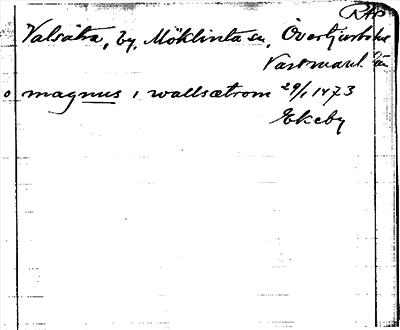 RAP
Valsätra, by, Möklinta sn, Övertjurbohd
Västmanl. län
o magnus i wallsætrom 29/1 1473
Ekeby